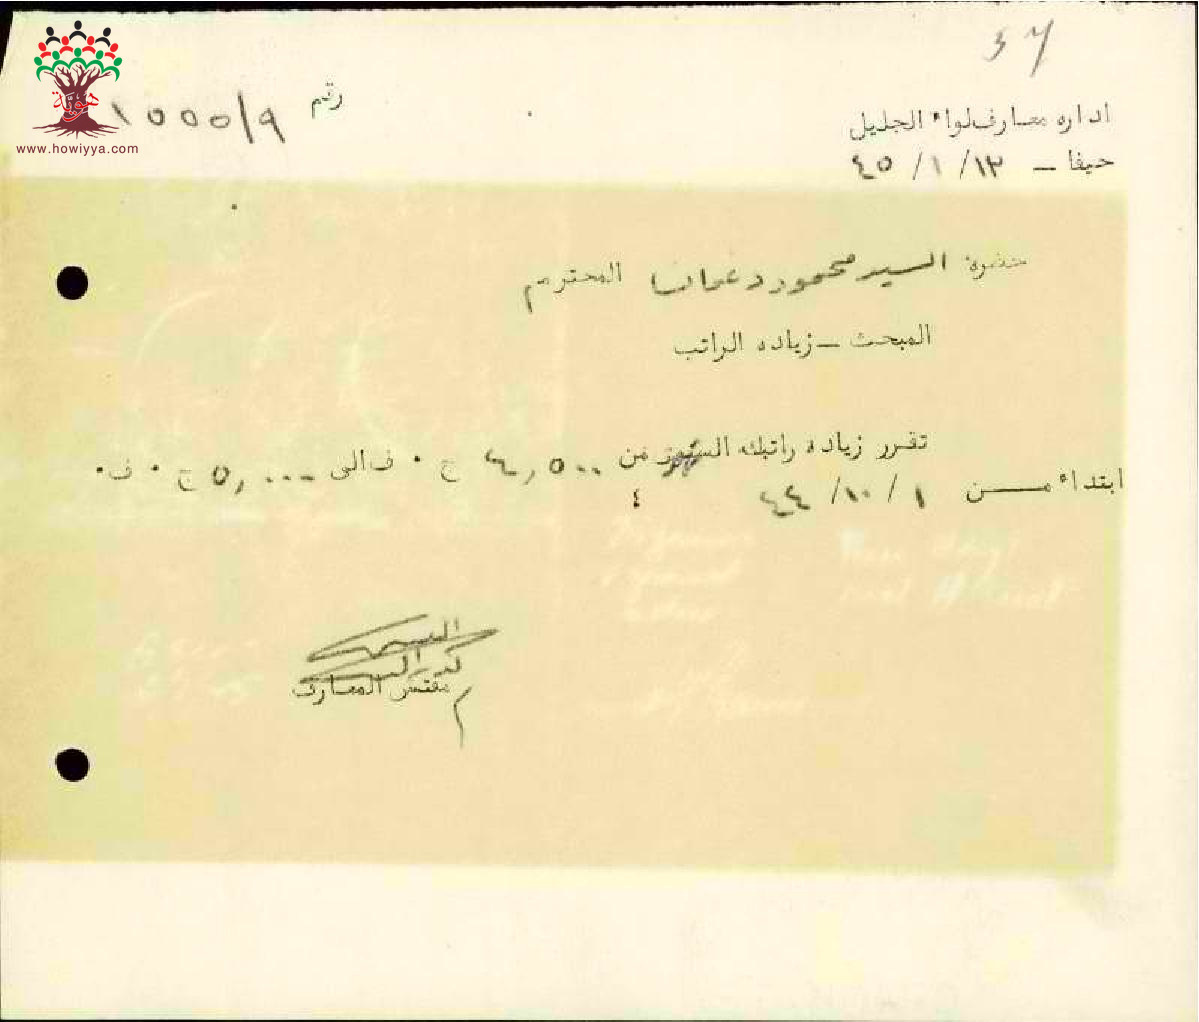 ٤٦
اداره معارف لواء الجليل
رقم ١٥٥٥/٩
هوية
www.howiyya.com
حيفا – ١٢/ ١/ ٤٥
حضرة السيد محمود دعمان المحترم
المبحث – زياده الراتب
تقرر زياده راتبك الشهري من ٤,٥٠٠ ج ٠ ف الى ٥,٠٠٠ ج ٠ ف٠
ابتداء من ١/ ١٠/ ٤٤
مفتش المعارف